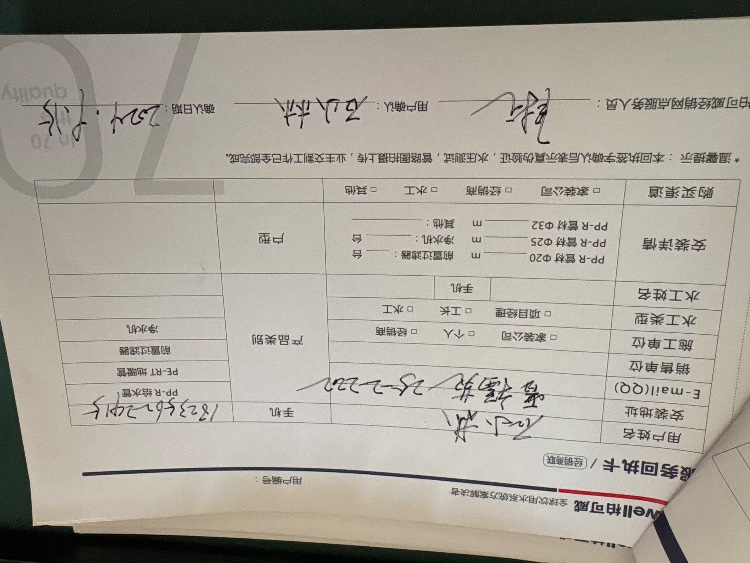 well柏可威 全球饮用水系统方案解决者
用户编号：
服务回执卡 / 经销商联
用户姓名 石小林 手机
安装地址
E-mail(QQ) 25-2-202
销售单位
施工单位 □ 家装公司 □ 个人 □ 经销商
水工类型 □ 项目经理 □ 工长 □ 水工
水工姓名 手机
产品类别
PP-R 给水管
PE-RT 地暖管
前置过滤器
净水机
安装详情
PP-R 管材 Φ20 m 前置过滤器： 台
PP-R 管材 Φ25 m 净水机： 台
PP-R 管材 Φ32 m 其他：
户型
购买渠道 □ 家装公司 □ 经销商 □ 水工 □ 其他
* 温馨提示：本回执签字确认后表示真伪验证，水压测试，管路图拍摄上传，业主交割工作已全部完成。
柏可威经销网点服务人员： 用户确认： 石小林 确认日期： 2024.